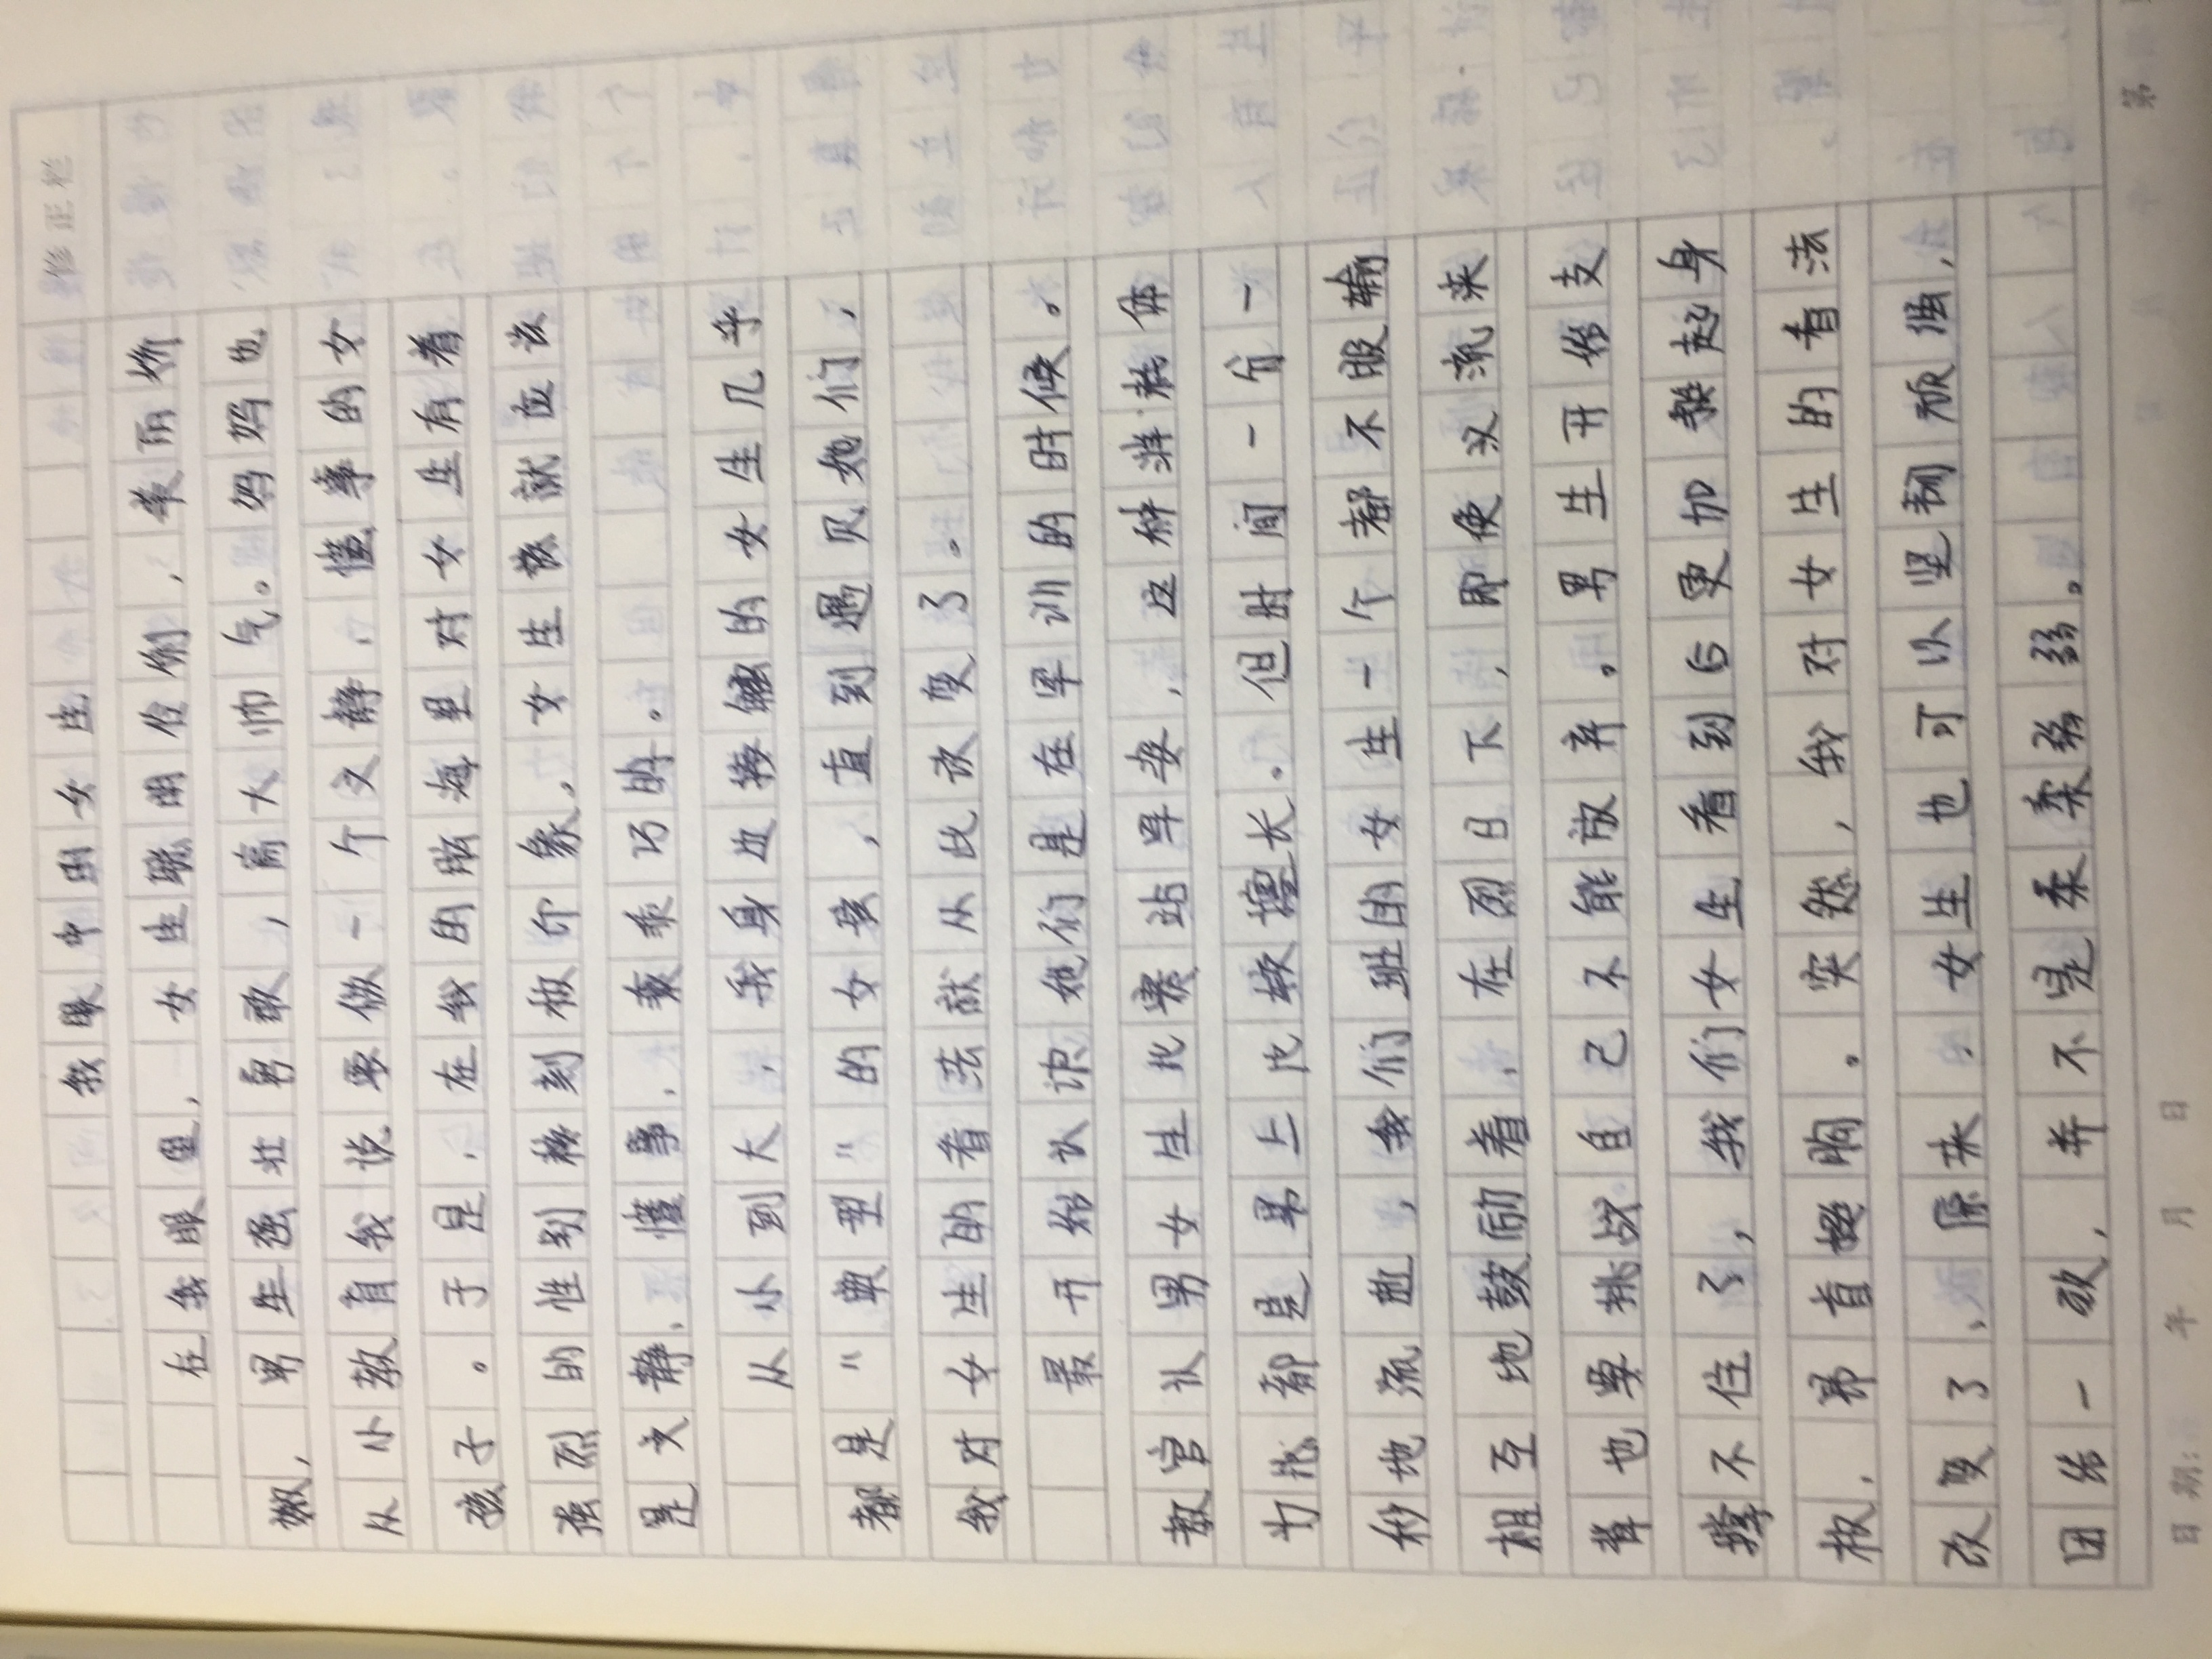 修正栏
我眼中的女生
在我眼里，女生聪明伶俐，美丽娇
嫩，男生强壮勇敢，高大帅气。妈妈也
从小教育我说要做一个文静，懂事的女
孩子。于是，在我的脑海里对女生有着
强烈的性别棒刻板印象。女生就应该
是文静，懂事，乖巧的。
从小到大，我身边接触的女生几乎
都是"典型"的女孩，直到遇见她们，
我对女生的看法就从此改变了。
最开始认识她们是在军训的时候。
教官让男女生比赛站军姿，这种拼耗体
力活都是男上比较擅长。但时间一分一
秒地流逝，我们班的女生一个都不服输
相互地鼓励着，在烈日下，即使汉流来
背也要挑战自己不能放弃。男生开始支
撑不住了，我们女生看到后更加挺起身
板，昂首挺胸。突然，我对女生的看法
改变了，原来，女生也可以坚韧顽强，
团结一致，并不是柔柔弱弱。
日期： 年 月 日
第